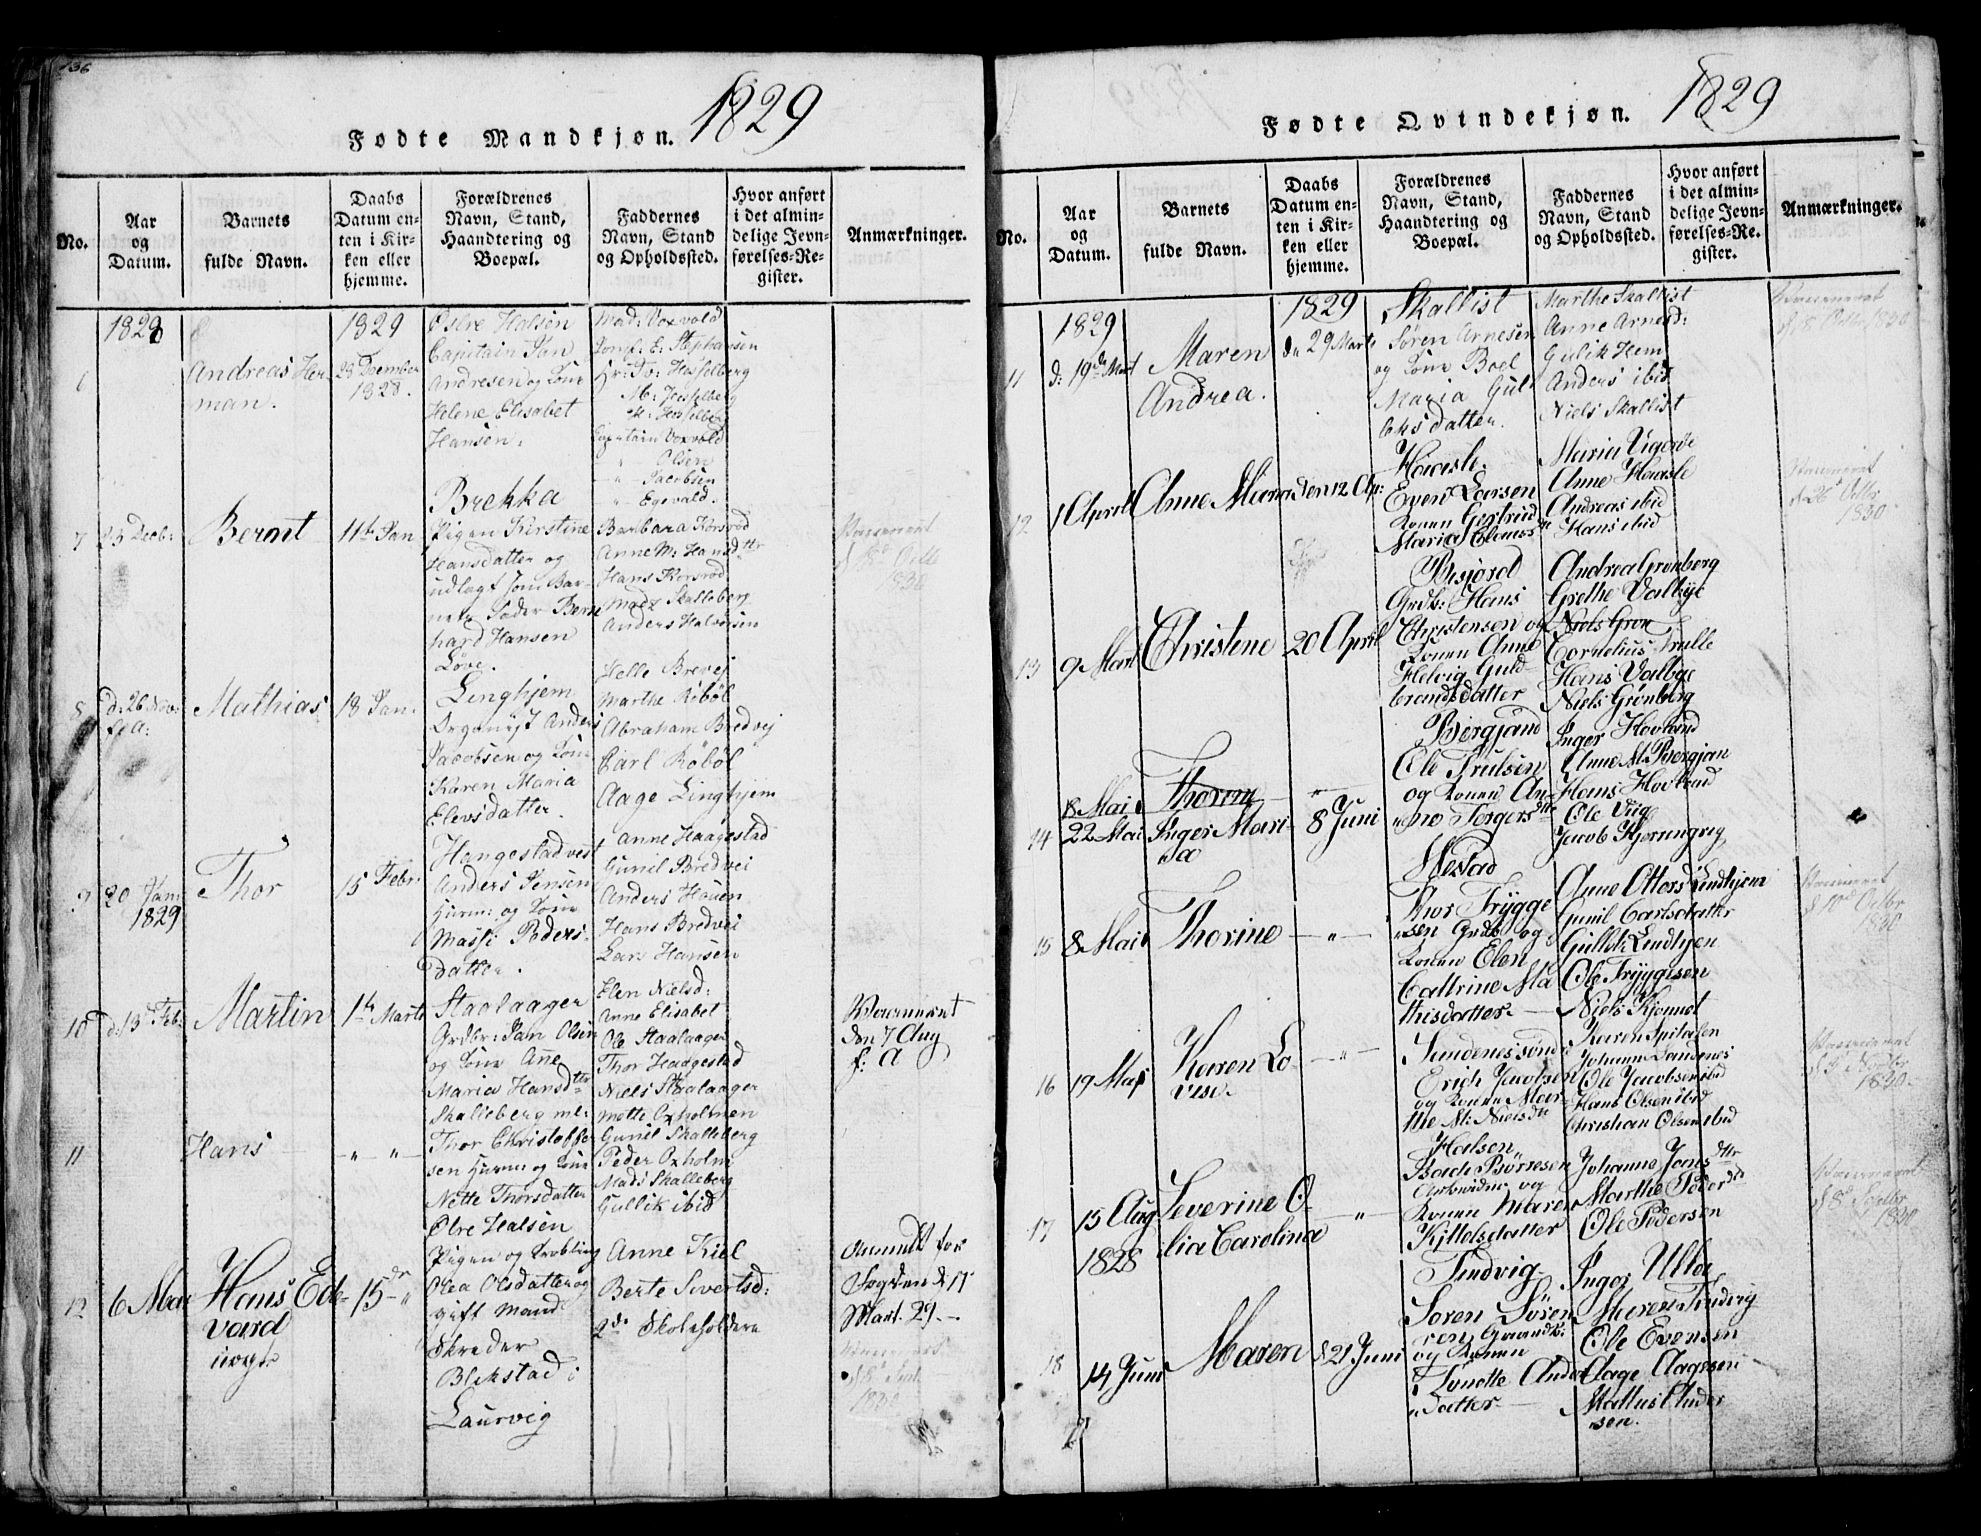 136
Fødte Mandkjøn. 1829
No.
Aar
og
Datum.
Barnets
fulde Navn.
Daabs
Datum en-
ten i Kir-
ken eller
hjemme.
Forældrenes
Navn, Stand,
Haandtering og
Boepæl.
Faddernes
Navn, Stand
og Opholdssted.
Hvor anført
i det almin-
delige Jevn-
førelses-Re-
gister.
Anmærkninger.
1829
6
Andreas Her-
man.
1829
28 Decmber
1828.
Østre Halsen
Capitain Jan
Andresen og Kone
Helene Elisabet
Hansen.
Mad: Voxvold
Jomf: E: Stephansen
M: Hesselberg
Capitain Voxvold
" Olsen
" Jacobsen
" Egevald.
7
23 Decbr:
Bernt
11te Jan
Brekka
Pigen Kirstine
Hansdatter og
udlagt som Bar-
nets Fader Bern
hard Hansen
Løve.
Barbara Korsrød
Anne M: Hansdttr
Hans Korsrød
Madz Skalleberg
Anders Halvorsen
Vaccineret
d 8de Octbr
1830
8
d: 26 Nov:
f: A:
Mathias
18 Jan.
Linghjem
Anders
Jacobsen og Kone
Karen Maria
Elevsdatter.
Helle Brevej
Marthe Røbøl
Abraham Bredvej
Carl Røbøl
Aage Linghjem
9
20 Jan:
1829
Thor
15 Febr:
Haugestad vest
Anders Jensen
Huusm: og Kone
Massi Peders-
datter.
Anne Haagestad
Gunil Bredvei
Anders Hauen
Hans Bredvei
Lars Hansen
10
d: 13 Feb:
Martin
1te Marts
Staalaager
Grdbr: Jan Olsen
og Kone Ane
Maria Hansdttr
Elen Nielsd:
Anne Elisabet
Ole Staalaager
Thor Haagestad
Niels Staalaager
Vaccineret
den 7 Aug
f: A
11
Hans
" "
Skalleberg ml:
Thor Christoffer
sen Huusm og Kone
Nette Thorsdatter
Mette Oxholmen
Gunil Skalleberg
Peder Oxholm
Mads Skalleberg
Gullik ibid
12
6 Mar
Hans Ed-
vard
uægte
15de "
Østre Halsen
Pigen og
Olea Olsdatter og
gift Mand
Skreder
Blekstad i
Laurvig
Anne Kiel
Berte Sivertsd:
2de Skoleholdere
Anmeldt for
Fogden d 17
Mart. 29
Fødte Qvindekjøn. 1829
No.
Aar
og
Datum.
Barnets
fulde Navn.
Daabs
Datum en-
ten i Kir-
ken eller
hjemme.
Forældrenes
Navn, Stand,
Haandtering og
Boepæl.
Faddernes
Navn, Stand
og Opholdssted.
Hvor anført
i det almin-
delige Jevn-
førelses-Re-
gister.
Anmærkninger.
1829
11
d: 19de Mart
Maren
Andrea.
1829
dn 29 Marts
Skallist
Søren Arnesen
og Kone Boel
Maria Gul
leksdatter.
Marthe Skallist
Anne Arnesd:
Gulik Hem
Anders ibid
Niels Skallist
Vaccineret
d 8 Octbr 1830
12
1 April
Anne Maria
den 12 Apr:
Haasle
Even Larsen
Konen Gertrud
Maria Clausdtr
Maria Vigerøe
Anne Haasle
Andreas ibid
Hans ibid
Vaccineret
d 26 Octbr
1830
13
9 Mart
Christene
20 April
Besjord
Grdb: Hans
Christensen og
Konen Anne
Helvig Guld-
brandsdatter
Andrea Grønberg
Grethe Valbye
Niels Grøn
Cornelius Trulle
Hans Valbye
Niels Grønberg
14
8 Mai
22 Mai
Thorine
Inger Mari-
a
"
8 Juni
Bergjand
Ole Trulsen
og Konen An-
ne Torgersdtr
Inger Hovland
Anne M. Bergjan
Hans Hovland
Ole Viig
Jacob Kjerringvig
15
8 Mai
Thorine
"
Mestad
Thor Trygge
sen Grdb og
Konen Elen
Cattrine Ma
thisdatter
Anne Ottersd Lindhjem
Gunil Carlsdatter
Gullek Lindhjen
Ole Tryggesen
Niels Kjennet
Vaccineret
d 10 Octbr
1830
16
19 Maj
Karen Lo-
vise.
"
Sundenes søndr
Erich Jacobsen
og Konen Mar-
the M: Nielsdtr
Karen Spitalen
Johanne Sandenes
Ole Jacobsen ibid
Hans Olsen ibid
Christian Olsen ibid
Vaccineret
1830.
17
15 Aug
1828
Severine O-
lia Carolina
"
Halsen
Baade Børresen
Konen Maren
Kjttelsdatter
Johanne Jansdttr
Marthe Pedersdtr
Ole Pedersen
Vaccineret
1830
18
14 Juni
Maren
d 21 Juni
Tindvig
Søren Sören
sen Gaardb.
og Konen
Lonette Anders
datter
Inger Ulla
Maren Tindvig
Ole Evensen
Aage Aagesen
Mattis Ander
sen.